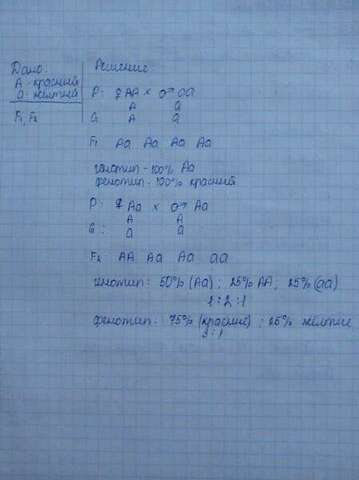 Дано:
А - красный
а - жёлтый
F₁, F₂
Решение
P: ♀ AA × ♂ aa
A a
G: A a
F₁ Aa Aa Aa Aa
генотип - 100% Aa
фенотип - 100% красный
P: ♀ Aa × ♂ Aa
A A
G: a a
F₂ AA Aa Aa aa
генотип: 50% (Aa) ; 25% AA ; 25% (aa)
1 : 2 : 1
фенотип: 75% (красный) ; 25% жёлтые
3 : 1